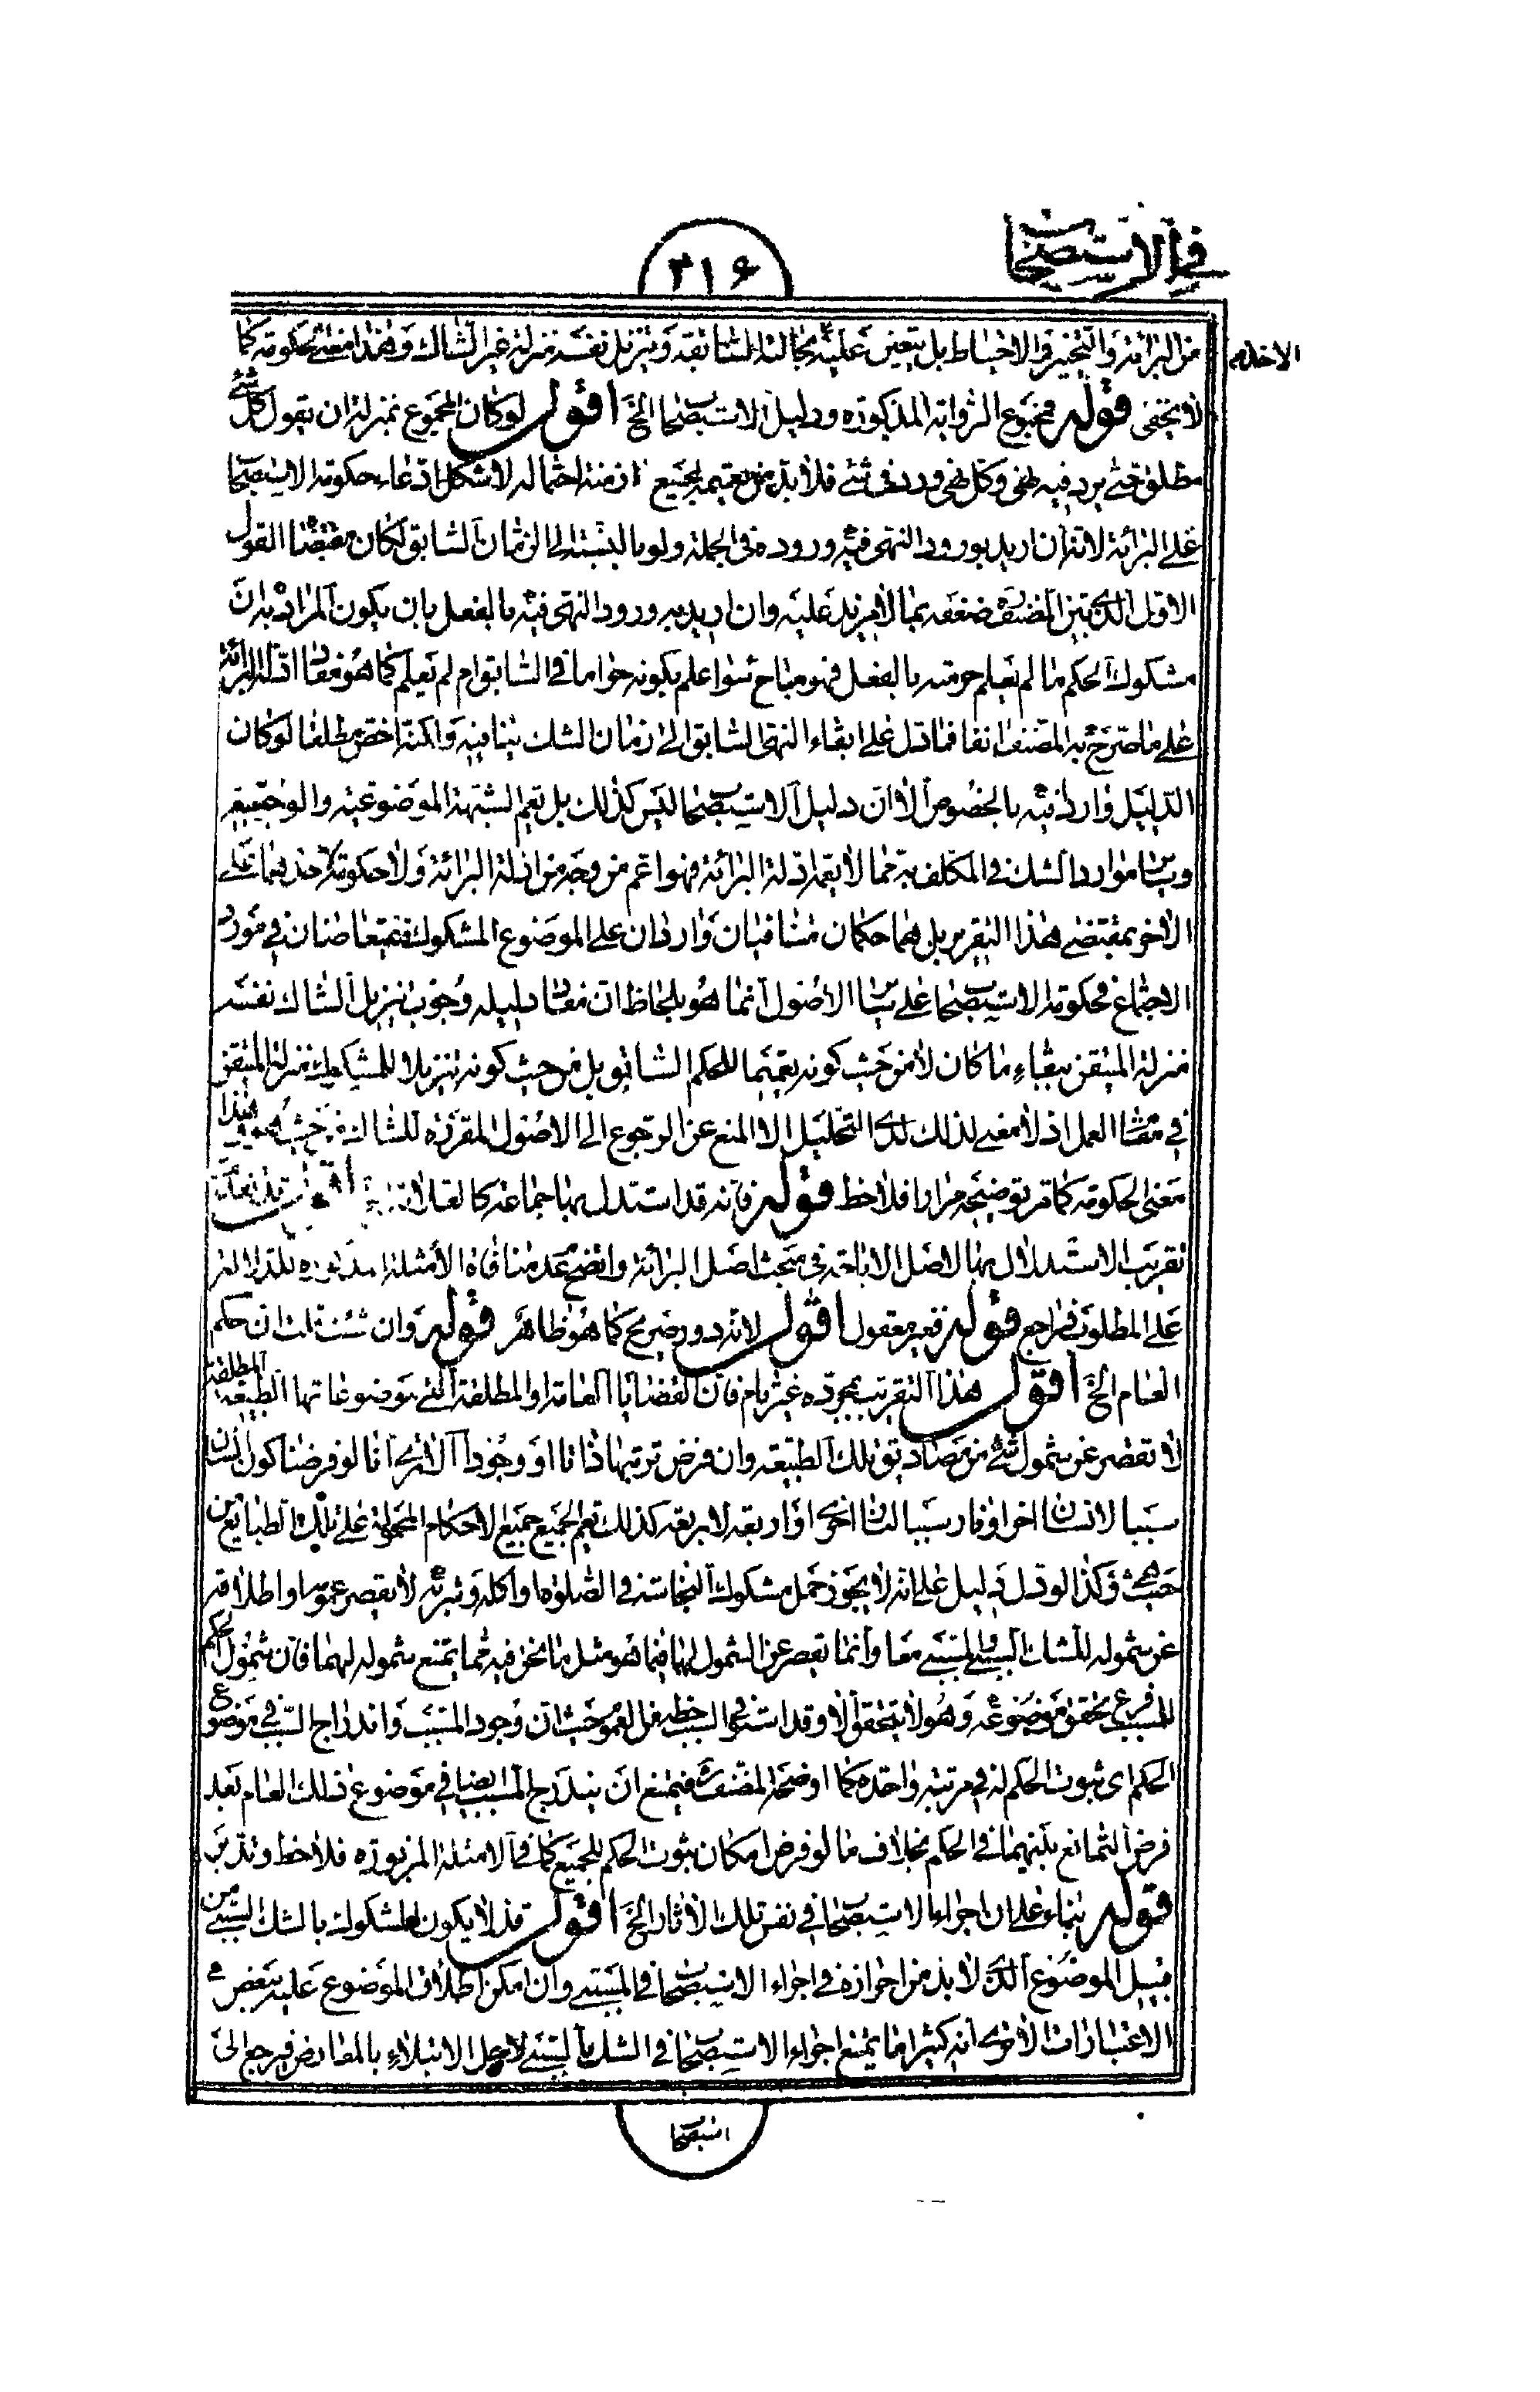 في الاستصحاب
۳۱۶
الاخذ
من البرائة والتخيير والاحتياط بل يتعين عليه بحالته السابقة وينزل نفسه منزلة غير الشاك وهذا معنى حكومته كما
لا يخفى قوله فمجموع الرواية المذكورة ودليل الاستصحاب الخ اقول لو كان المجموع بمنزلة ان يقول كل شئ
مطلق حتى يرد فيه نهى وكل نهى ورد في شئ فلا بد من تعميمه لجميع ازمنة احتماله لاشكل ادعاء حكومة الاستصحاب
على البرائة لانه ان اريد بورود النهى فيه وروده في الجملة ولو بالنسبة الى الزمان السابق لكان مقتضاه القول
الاول الذي بين المصنف ره ضعفه بما لا مزيد عليه وان اريد به ورود النهى فيه بالفعل بان يكون المراد به ان
مشكوك الحكم ما لم يعلم حرمته بالفعل فهو مباح سواء علم بكونه حراما في السابق ام لم يعلم كما هو مفاد ادلة البرائة
على ما صرح به المصنف انفا فما دل على ابقاء النهى السابق الى زمان الشك ينافيه ولكنه اخص مطلقا لو كان
الدليل واردا فيه بالخصوص الا ان دليل الاستصحاب ليس كذلك بل يعم الشبهة الموضوعية والوجوبية
وسائر موارد الشك في المكلف به مما لا يعمه ادلة البرائة فهو اعم من وجه من ادلة البرائة ولا حكومة لاحدهما على
الاخر بمقتضى هذا التقرير بل هما حكمان متنافيان واردان على الموضوع المشكوك فيتعارضان في مورد
الاجتماع فحكومة الاستصحاب على سائر الاصول انما هو بلحاظ ان مفاد دليله وجوب تنزيل الشاك نفسه
منزلة المتيقن ببقاء ما كان لا من حيث كونه تعميما للحكم السابق بل من حيث كونه تنزيلا للمشكوك منزلة المتيقن
في مقام العمل اذ لا معنى لذلك لدى التحليل الا المنع عن الرجوع الى الاصول المقررة للشاك من حيث هو وهذا
معنى الحكومة كما مر توضيحه مرارا فلاحظ قوله فانه قد استدل بها جماعة كالعلامة اقول قد تقدم
تقريب الاستدلال بها لاصل الاباحة في مبحث اصل البرائة واتضح عدم منافاة الأمثلة المذكورة للدلالة
على المطلوب فراجع قوله فغير معقول اقول لانه دور صريح كما هو ظاهر قوله وان شئت قلت ان حكم
العام الخ اقول هذا التقريب بمجرده غير تام فان القضايا العامة او المطلقة التي موضوعاتها الطبيعة المطلقة
لا تقصر عن شمول شئ من مصاديق تلك الطبيعة وان فرض ترتبها ذاتا او وجودا الا ترى انا لو فرضنا كون انسان
سببا لانسان اخر او نار سببا لنار اخرى او اربعة لاربعة كذلك تعم الجميع جميع الاحكام المحمولة على تلك الطبايع من
حيث هى وكذا لو دل دليل على انه لا يجوز حمل مشكوك النجاسة في الصلوة او اكله وشربه لا يقصر عمومه او اطلاقه
عن شموله للشك السببى والمسببى معا وانما يقصر عن الشمول لهما فيما هو مثل ما نحن فيه مما يمتنع شموله لهما فان شمول الحكم
للمسبب فرع تحقق موضوعه وهو لا يتحقق الا وقد استوفى السبب حظه من العموم حيث ان وجود المسبب واندراج السبب في موضوع
الحكم اى ثبوت الحكم له في مرتبة واحدة كما اوضحه المصنف ره فيمتنع ان يندرج المسبب ايضا في موضوع ذلك العام بعد
فرض التمانع بينهما في الحكم بخلاف ما لو فرض امكان ثبوت الحكم للجميع كما في الامثلة المزبورة فلاحظ وتدبر
قوله بناء على ان اجراء الاستصحاب في نفس تلك الاثار الخ اقول قد لا يكون المشكوك بالشك السببى من
قبيل الموضوع الذي لا بد من احرازه في اجراء الاستصحاب في المسببى وان امكن اطلاق الموضوع عليه ببعض
الاعتبارات الا ترى انه كثيرا ما يمتنع اجراء الاستصحاب في الشك السببى لاجل الابتلاء بالمعارض فيرجع الى
استصحاب